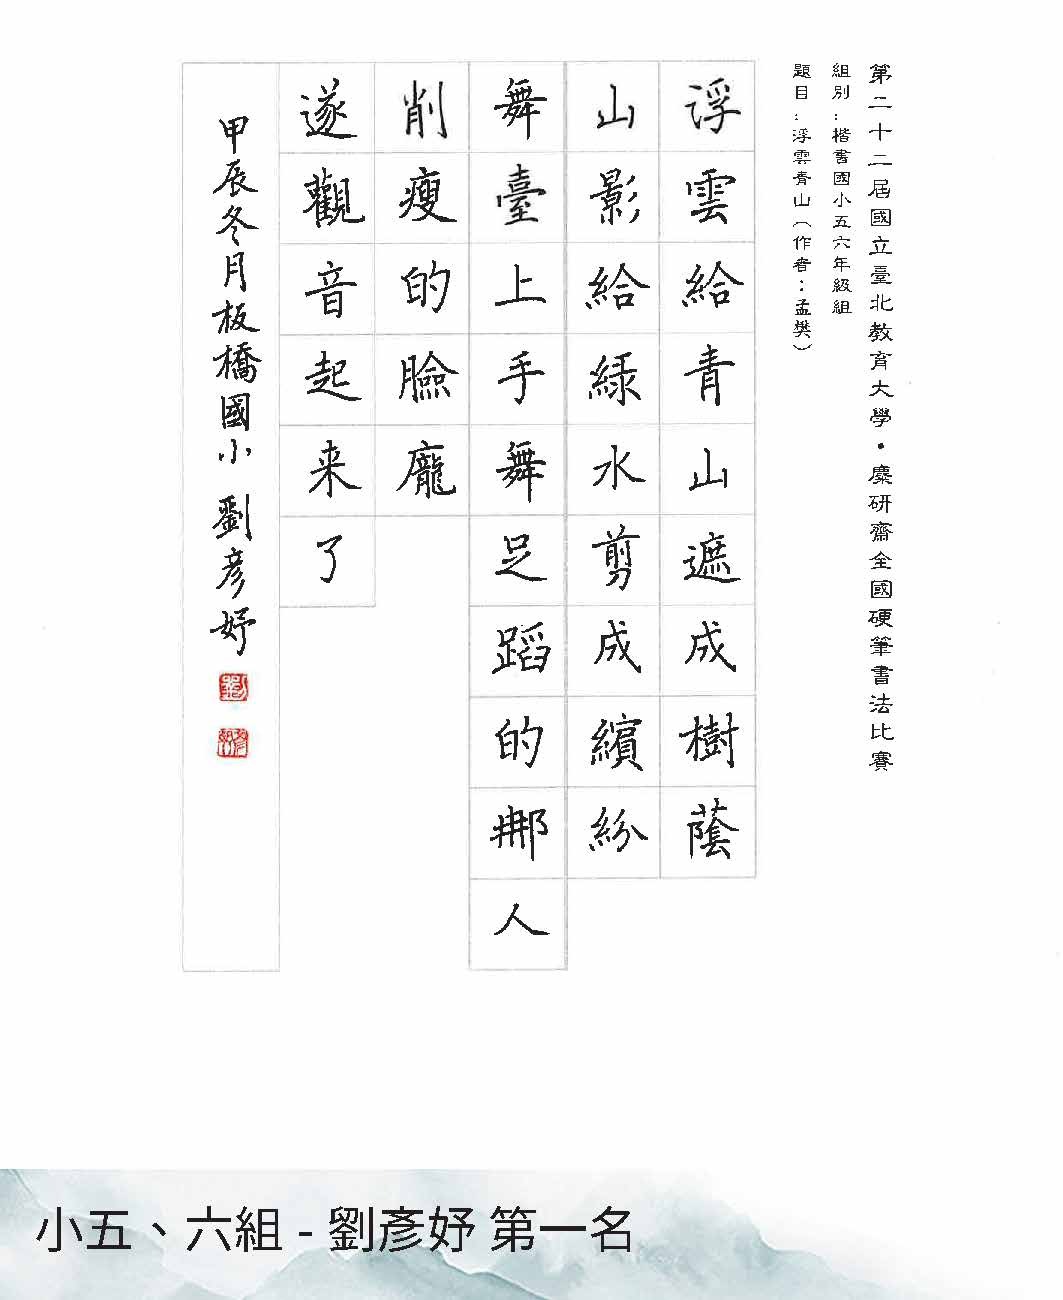 第二十二屆國立臺北教育大學・麋研齋全國硬筆書法比賽
組別：楷書國小五六年級組
題目：浮雲青山（作者：孟樊）
浮雲給青山遮成樹蔭
山影給綠水剪成繽紛
舞臺上手舞足蹈的那人
削瘦的臉龐
遂觀音起来了
甲辰冬月板橋國小 劉彥妤
劉
彥妤
小五、六組 - 劉彥妤 第一名